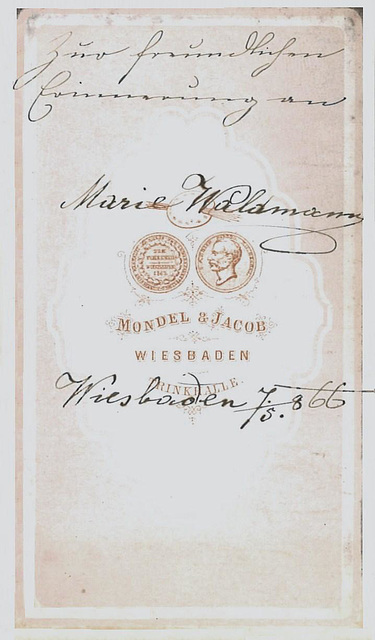 Zur freundlichen
Erinnerung an
Marie Waldmann
MONDEL & JACOB
WIESBADEN
TRINKHALLE.
Wiesbaden 7/5. 866